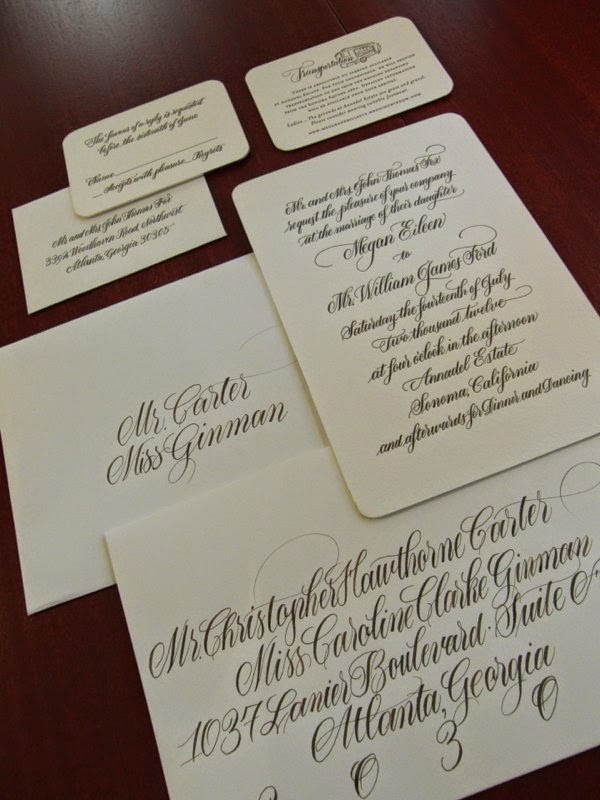 Transportation
The favour of a reply is requested
before the sixteenth of June
Name
Accepts with pleasure Regrets
Mr. and Mrs. John Thomas Fox
3394 Woodhaven Road, Northwest
Atlanta, Georgia 30305
Mr. and Mrs. John Thomas Fox
request the pleasure of your company
at the marriage of their daughter
Megan Eileen
to
Mr. William James Ford
Saturday, the fourteenth of July
Two thousand twelve
at four o'clock in the afternoon
Annadel Estate
Sonoma, California
and afterwards for Dinner and Dancing
Mr. Carter
Miss Ginman
Mr. Christopher Hawthorne Carter
Miss Caroline Clarke Ginman
1037 Lanier Boulevard · Suite
Atlanta, Georgia
0 3 0